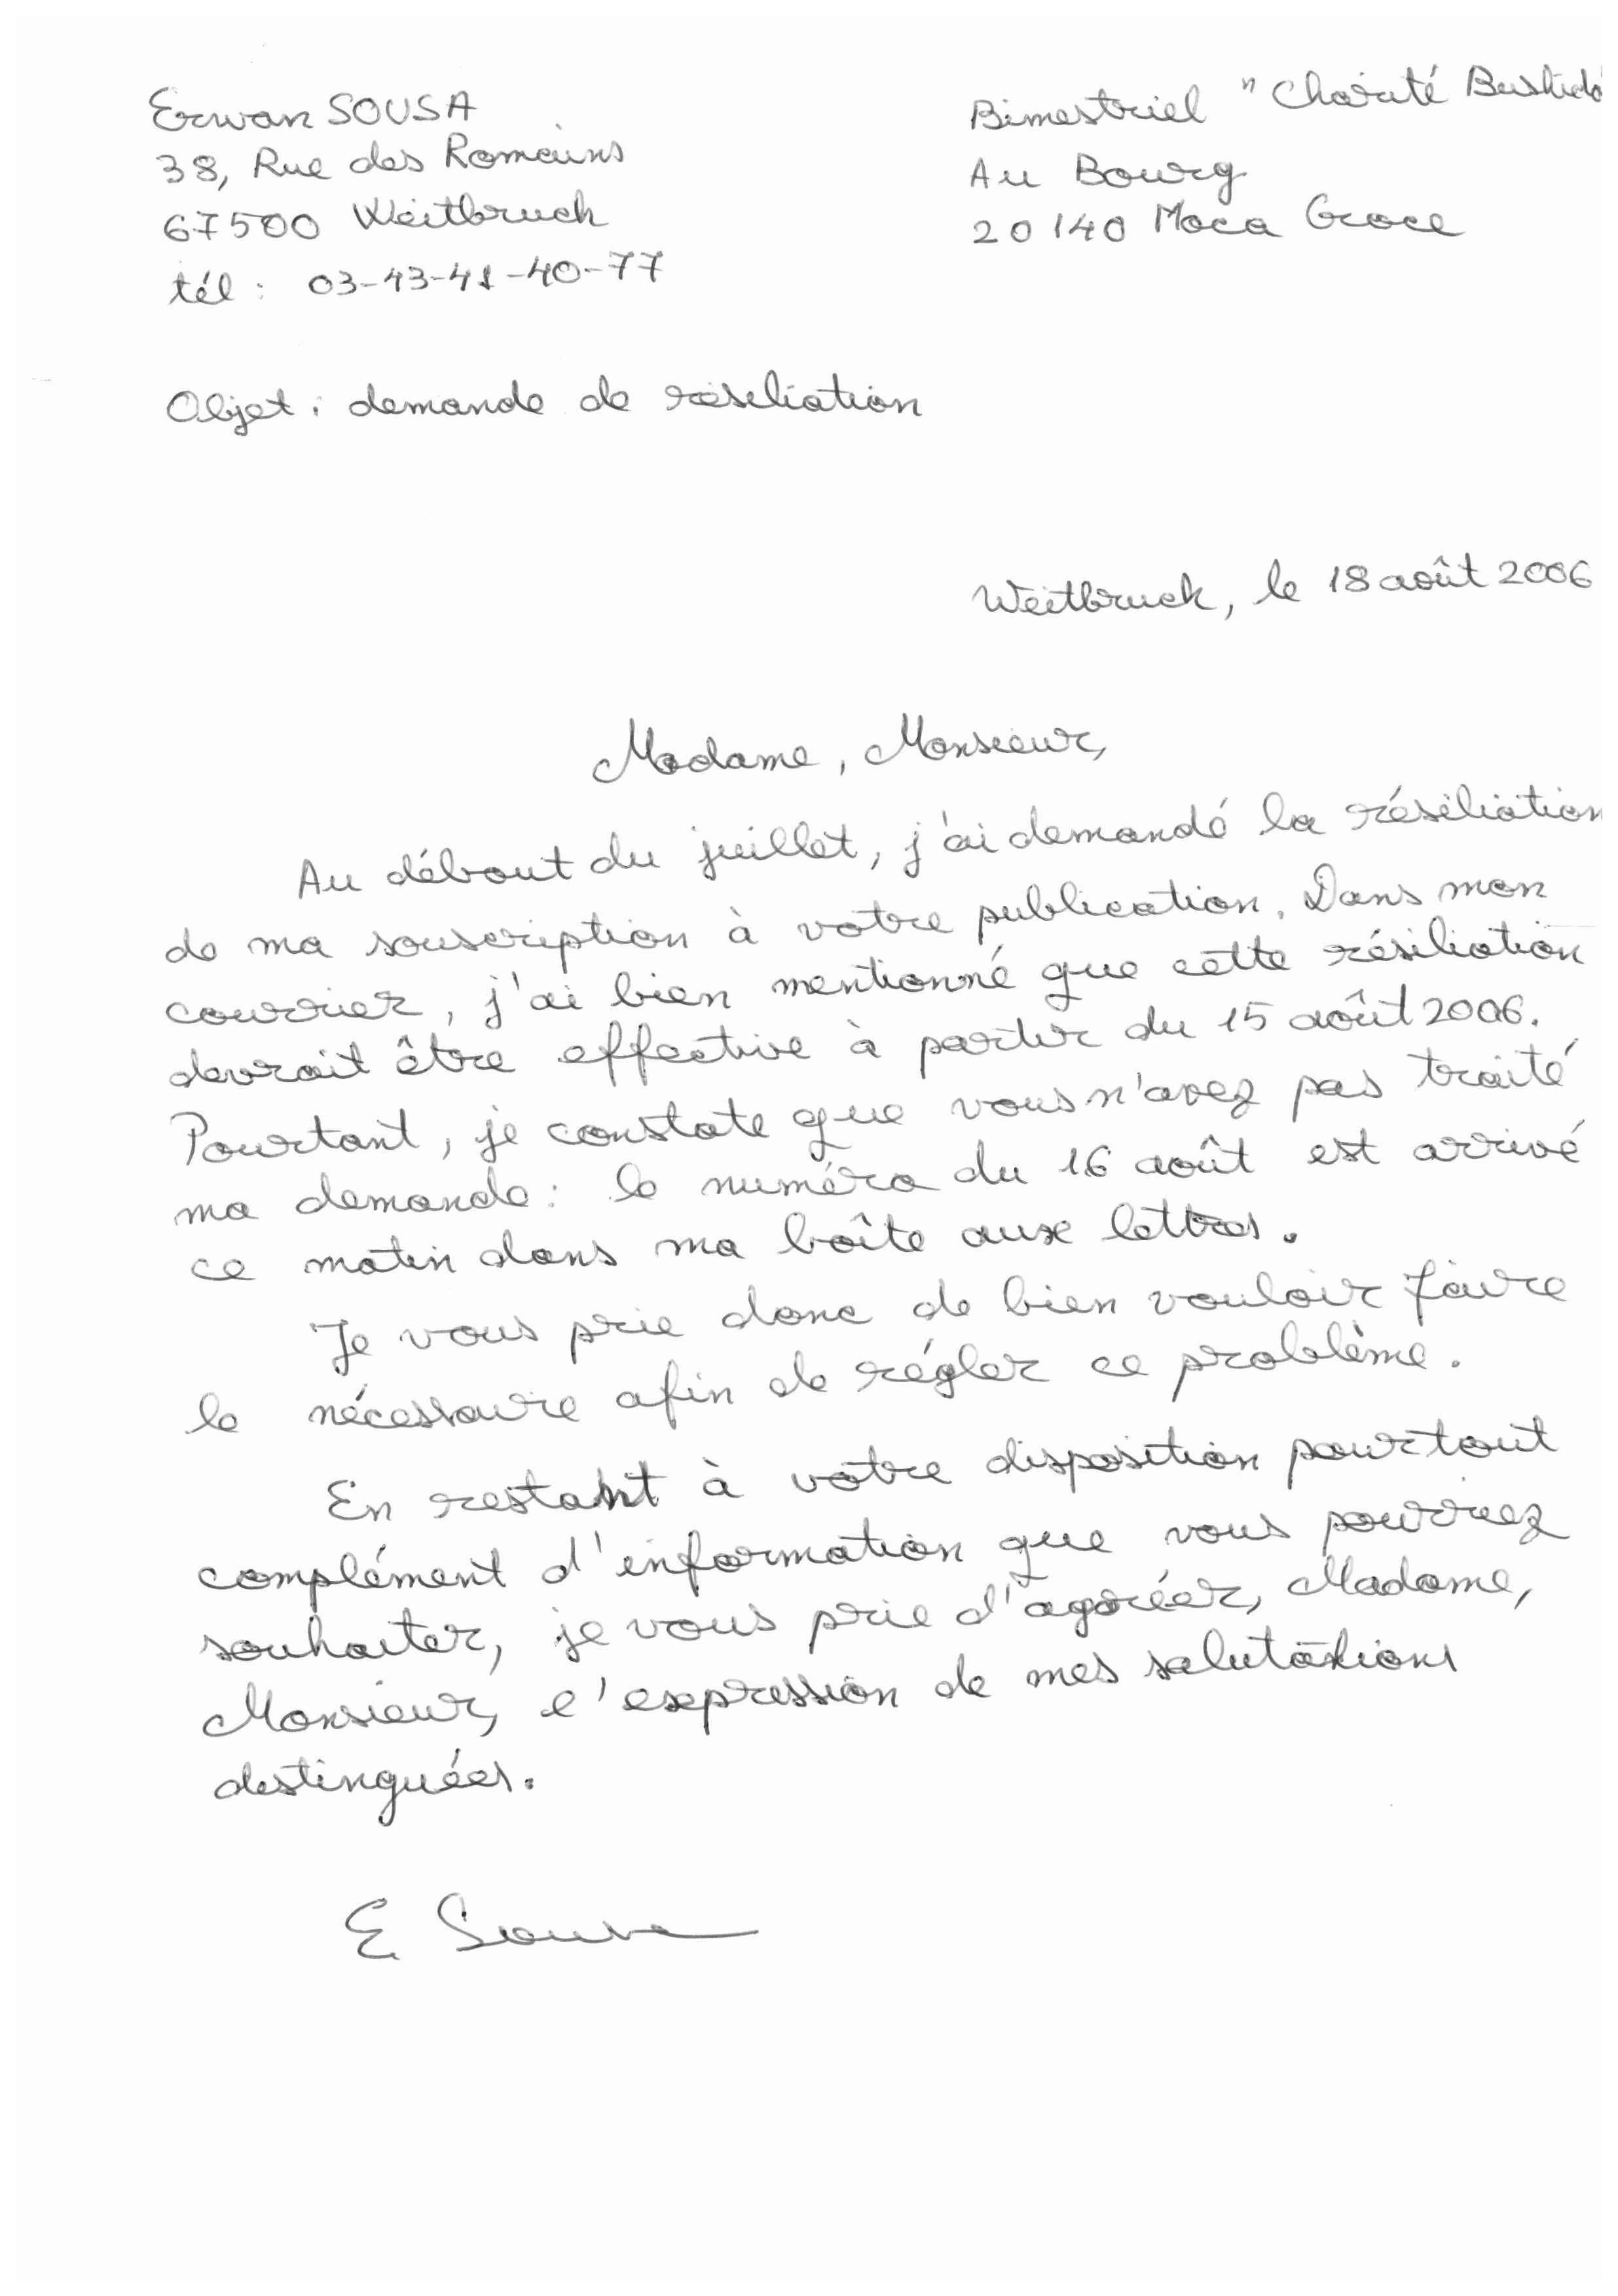 Erwan SOUSA
38, Rue des Romains
67500 Weitbruch
tél : 03-43-41-40-77
Bimestriel "Charité Bushido
Au Bourg
20140 Moca Croce
Objet : demande de résiliation
Weitbruck, le 18 août 2006
Madame, Monsieur,
Au débout du juillet, j'ai demandé la résiliation
de ma souscription à votre publication. Dans mon
courrier, j'ai bien mentionné que cette résiliation
devrait être effective à partir du 15 août 2006.
Pourtant, je constate que vous n'avez pas traité
ma demande : le numéro du 16 août est arrivé
ce matin dans ma boîte aux lettres.
Je vous prie donc de bien vouloir faire
le nécessaire afin de régler ce problème.
En restant à votre disposition pour tout
complément d'information que vous pourriez
souhaiter, je vous prie d'agréer, Madame,
Monsieur, l'expression de mes salutations
distinguées.
E Sousa